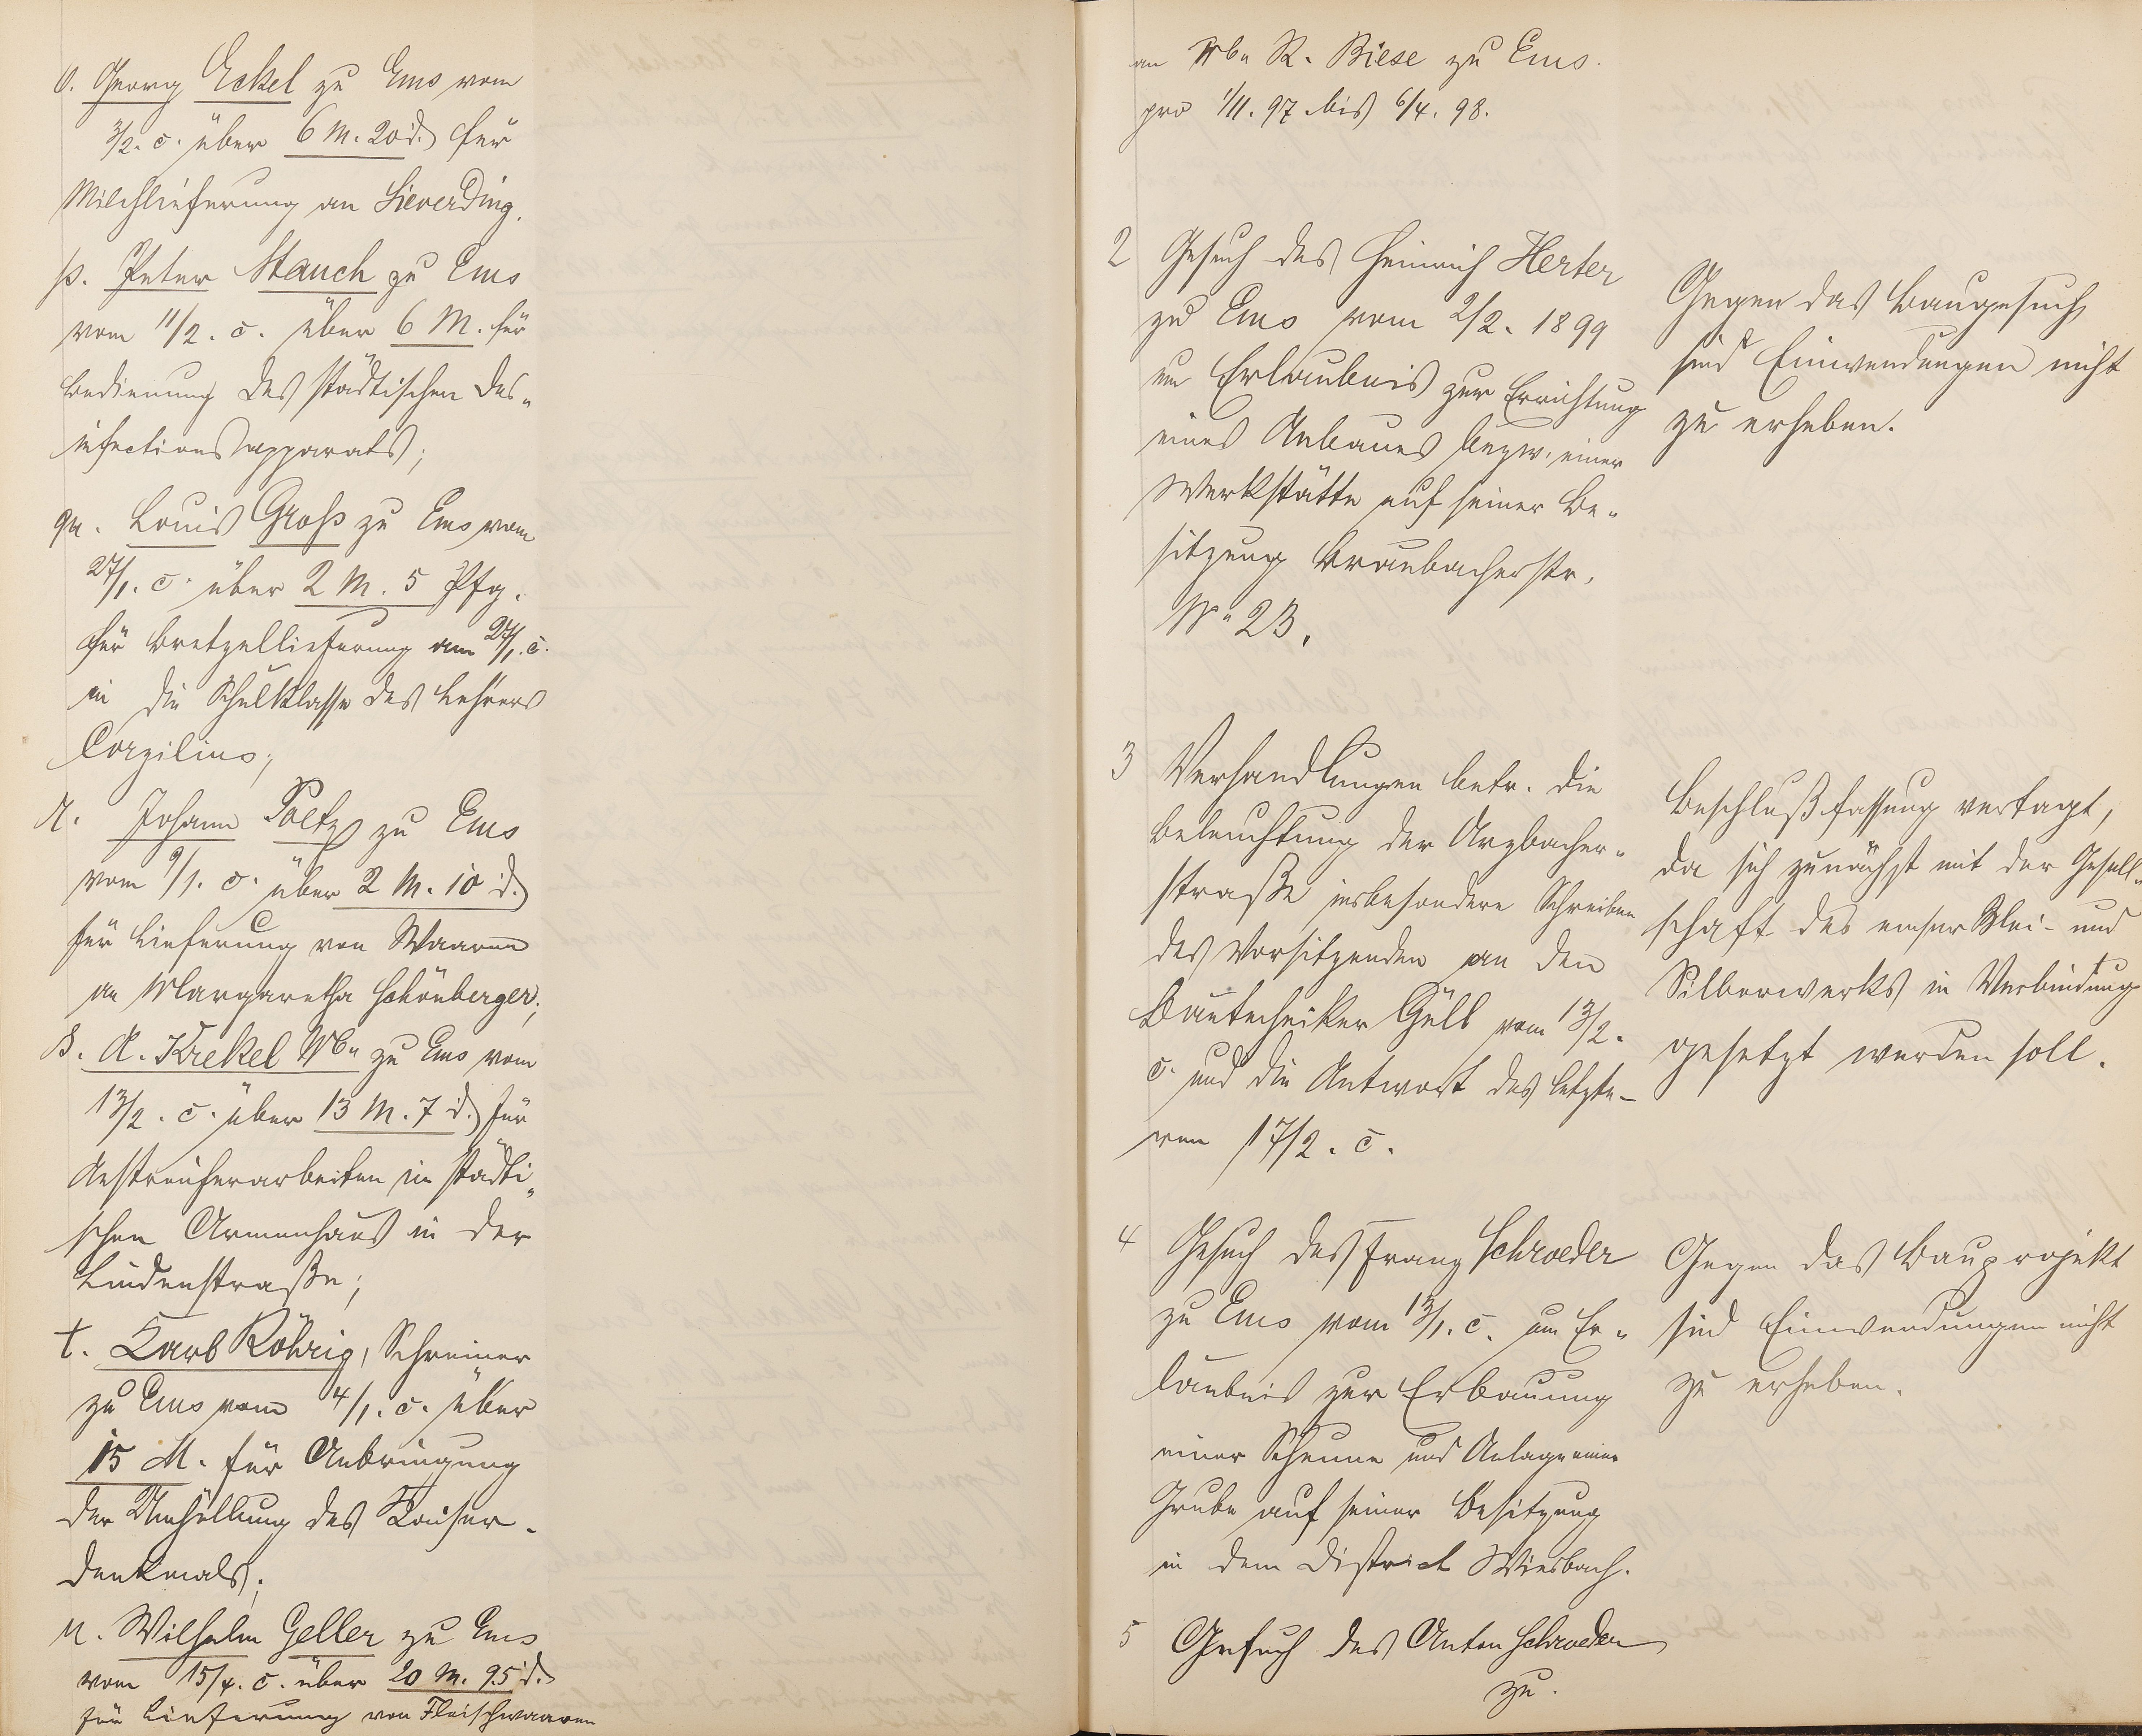 o. Georg Eckel zu Ems vom
3/2. c. über 6 M. 20 d. für
Milchlieferung an Sieverding.
p. Peter Stauch zu Ems
vom 11/2. c. über 6 M. für
Bedienung des städtischen Des„
infectionsapparats;
qu. Louis Groß zu Ems vom
27/1. c. über 2 M. 5 Pfg.
für Bretzellieferung am 27/1. c.
in die Schulklasse des Lehrers
Corzilius;
r. Johann Poetz zu Ems
vom 9/1. c. über 2 M. 10 d.
für Lieferung von Waaren
an Margaretha Schönberger;
s. A. Krekel Wb. zu Ems vom
13/2. c. über 13 M. 7 d. für
Anstreicherarbeiten im städti„
schen Armenhaus in der
Lindenstraße;
t. Karl Röhrig, Schreiner
zu Ems vom 4/1. c. über
15 M. für Anbringung
der Umhüllung des Kaiser-
denkmals;
u. Wilhelm Geller zu Ems
vom 15/4. c. über 20 M. 95 d.
für Lieferung von Fleischwaaren
an Wb. R. Biese zu Ems.
pro 1/11. 97 bis 6/4. 98.
2 Gesuch des Heinrich Herter
zu Ems vom 2/2. 1899
um Erlaubnis zur Errichtung
eines Anbaues bezw. einer
Werkstätte auf seiner Be„
sitzung Braubacherstr.
No 23.
Gegen das Baugesuch
sind Einwendungen nicht
zu erheben.
3 Verhandlungen betr. die
Beleuchtung der Arzbacher„
straße insbesondere Schreiben
des Vorsitzenden an den
Bautechniker Güll vom 13/2.
c. und die Antwort des letzte-
ren 17/2. c.
Beschlußfassung vertagt,
da sich zunächst mit der Gesell„
schaft des emser Blei- und
Silberwerks in Verbindung
gesetzt werden soll.
4 Gesuch des Franz Schroeder
zu Ems vom 13/1. c. um Er„
laubnis zur Erbauung
einer Scheune und Anlage einer
Grube auf seiner Besitzung
in dem District Wiesbach.
Gegen das Bauprojekt
sind Einwendungen nicht
zu erheben.
5 Gesuch des Anton Schroeder
zu.